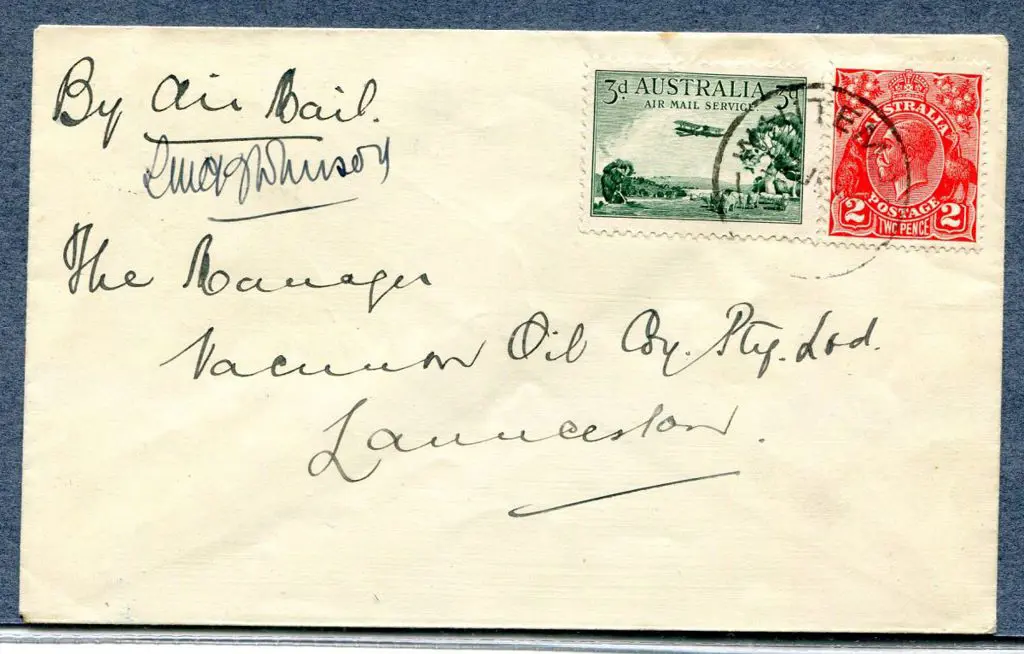 By Air Mail.
The Manager
Vacuum Oil Coy. Pty. Ltd.
Launceston.
3d AUSTRALIA 3d
AIR MAIL SERVICE
AUSTRALIA
POSTAGE
2 TWO PENCE 2